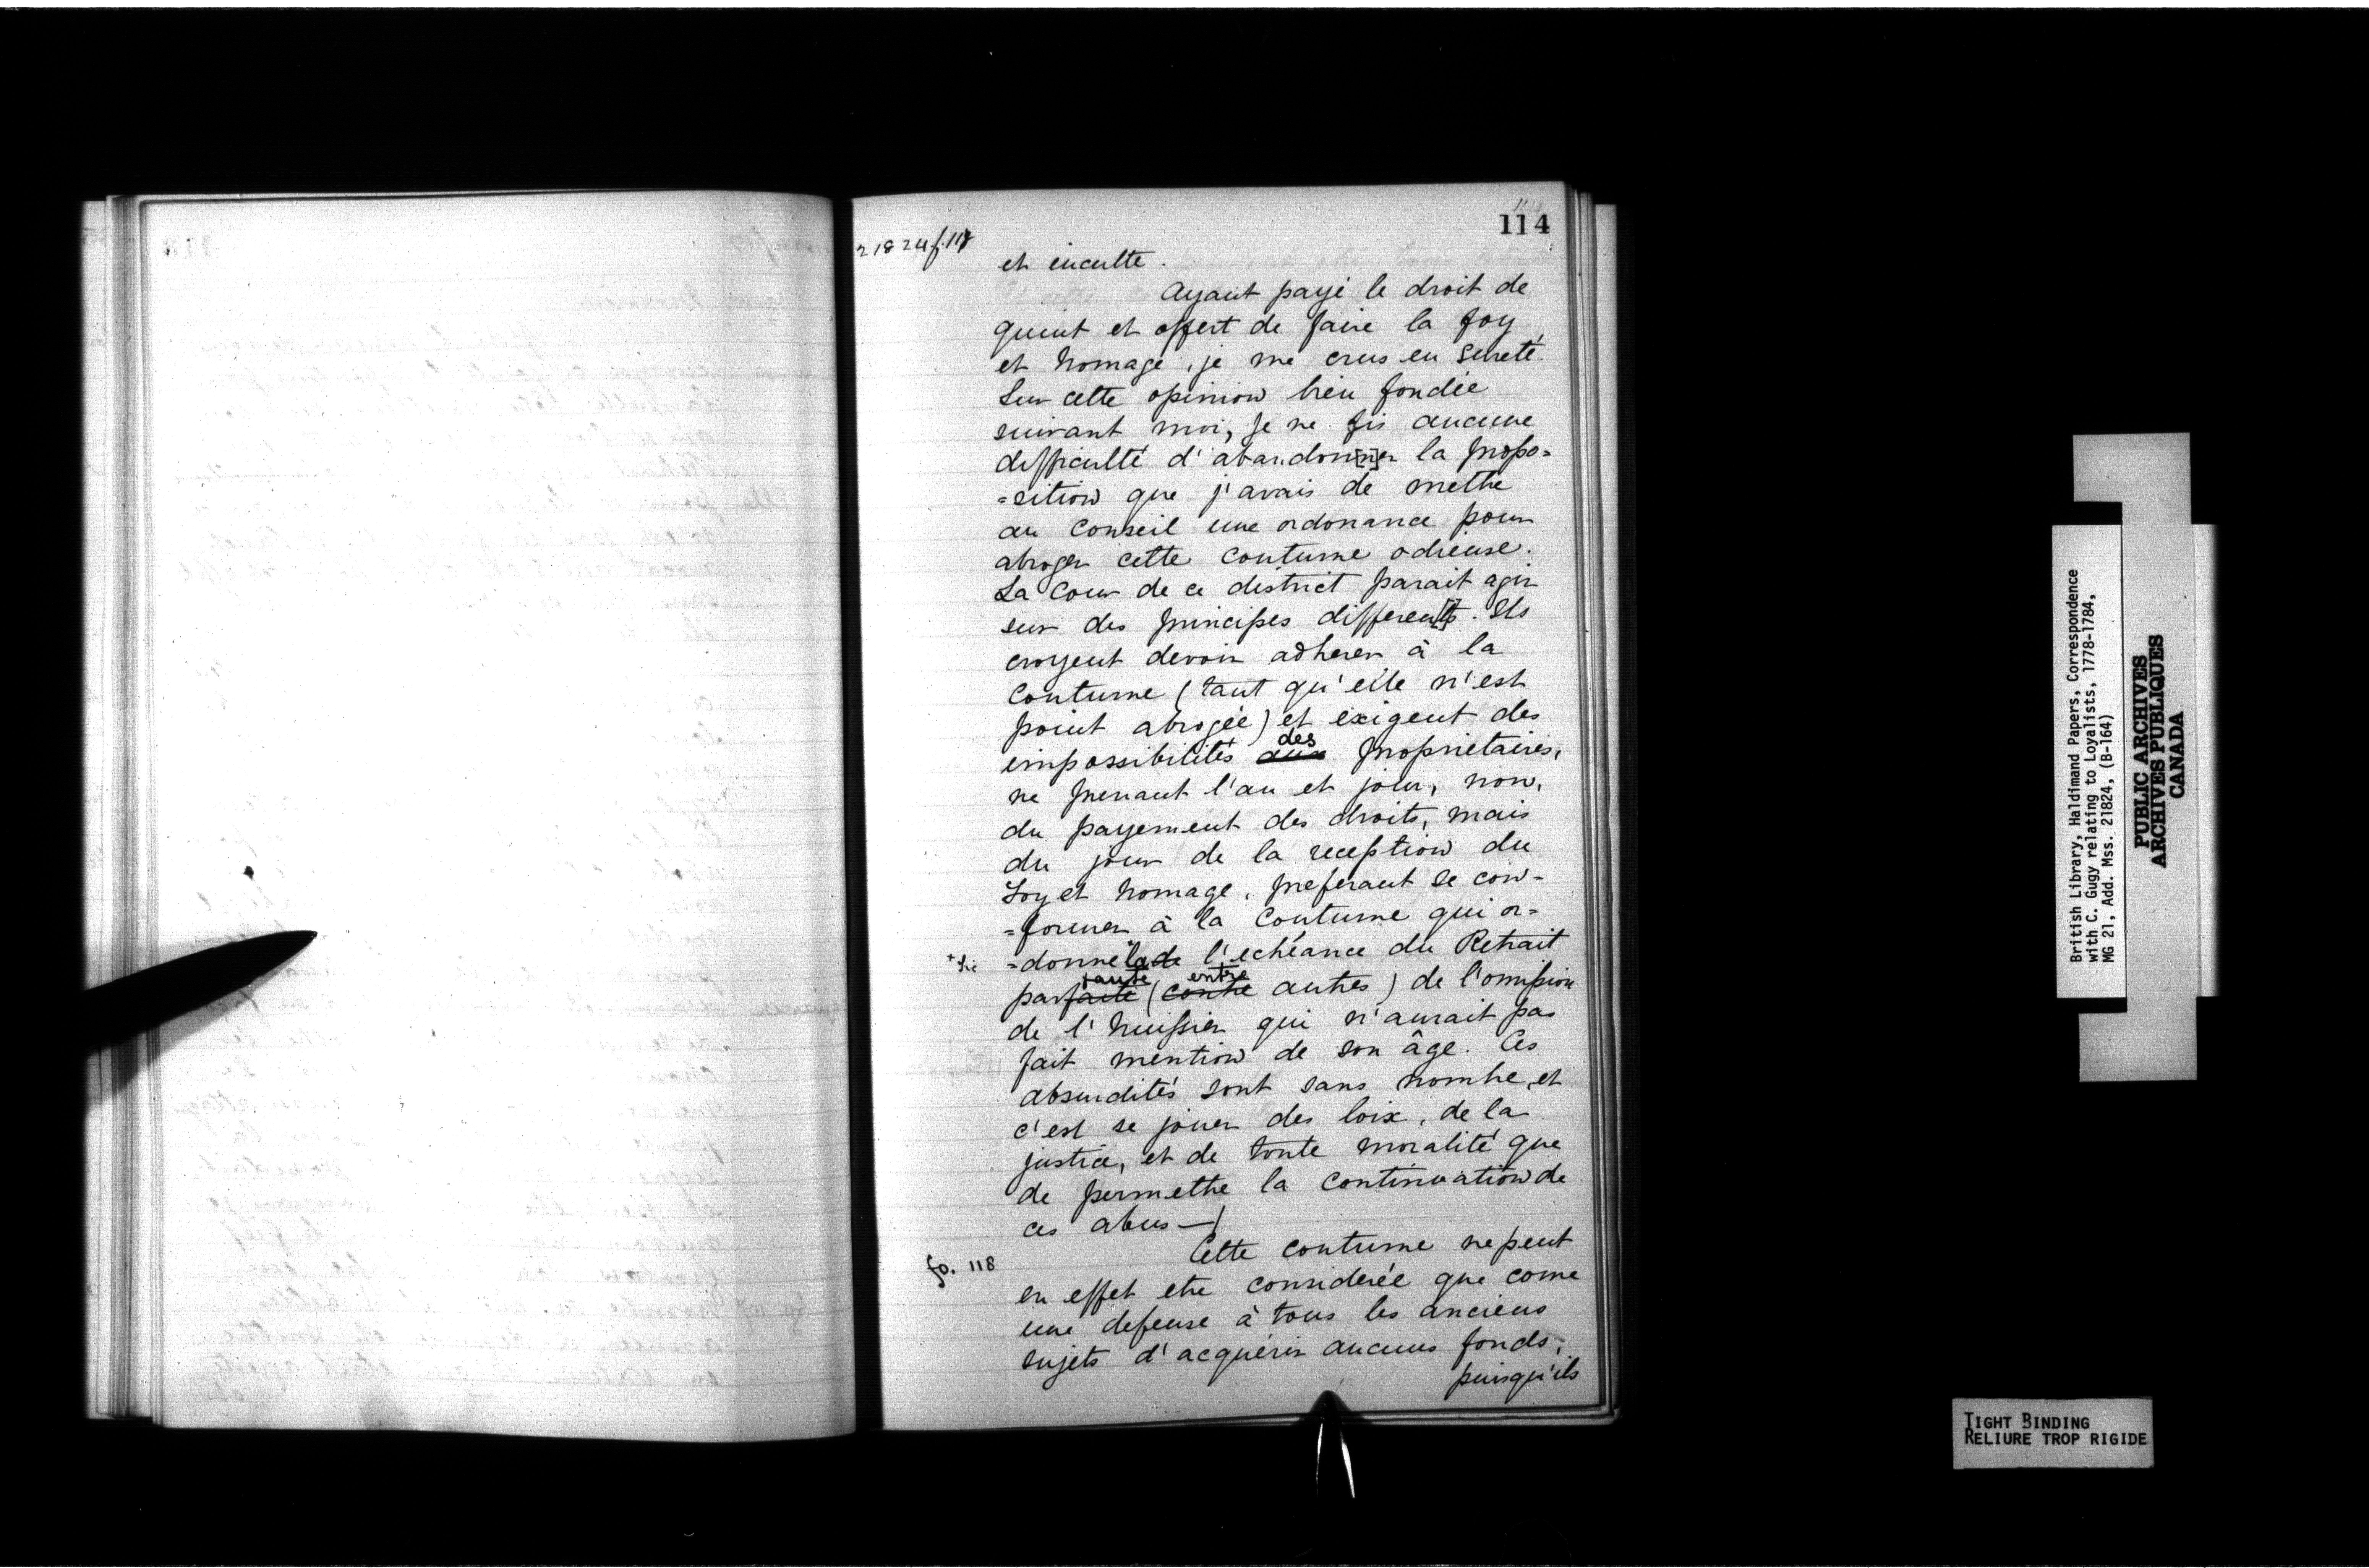 114
21824 f.117
et inculte.
Ayant payé le droit de
quint et offert de faire la foy
et homage, je me crus en sureté.
Sur cette opinion bien fondée
suivant moi, je ne fis aucune
difficulté d'abandon[n]er la propo=
=sition que j'avais de mettre
au Conseil une ordonance pour
abroger cette Coutume odieuse.
La Cour de ce district parait agir
sur des principes differen[t]s. Ils
croyent devoir adherer à la
Coutume (tant qu'elle n'est
point abrogée) et exigent des
impossibilités aux des proprietaires,
ne prenant l'an et jour, non,
du payement des droits, mais
du jour de la reception du
Foy et homage, preferant se con=
=former à la Coutume qui or=
+ Sic
=donne la de l'echéance du Retrait
par faite faute (contre entre autres) de l'omission
de l'huissier qui n'aurait pas
fait mention de son âge. Ces
absurdités sont sans nombre, et
c'est se jouer des loix, de la
justice, et de toute moralité que
de permettre la Continuation de
ces abus —/
fo. 118
Cette coutume ne peut
en effet etre considerée que come
une defense à tous les anciens
sujets d'acquérir aucuns fonds;
puisqu'ils
British Library, Haldimand Papers, Correspondence
with C. Gugy relating to Loyalists, 1778-1784,
MG 21, Add. Mss. 21824, (B-164)
PUBLIC ARCHIVES
ARCHIVES PUBLIQUES
CANADA
TIGHT BINDING
RELIURE TROP RIGIDE